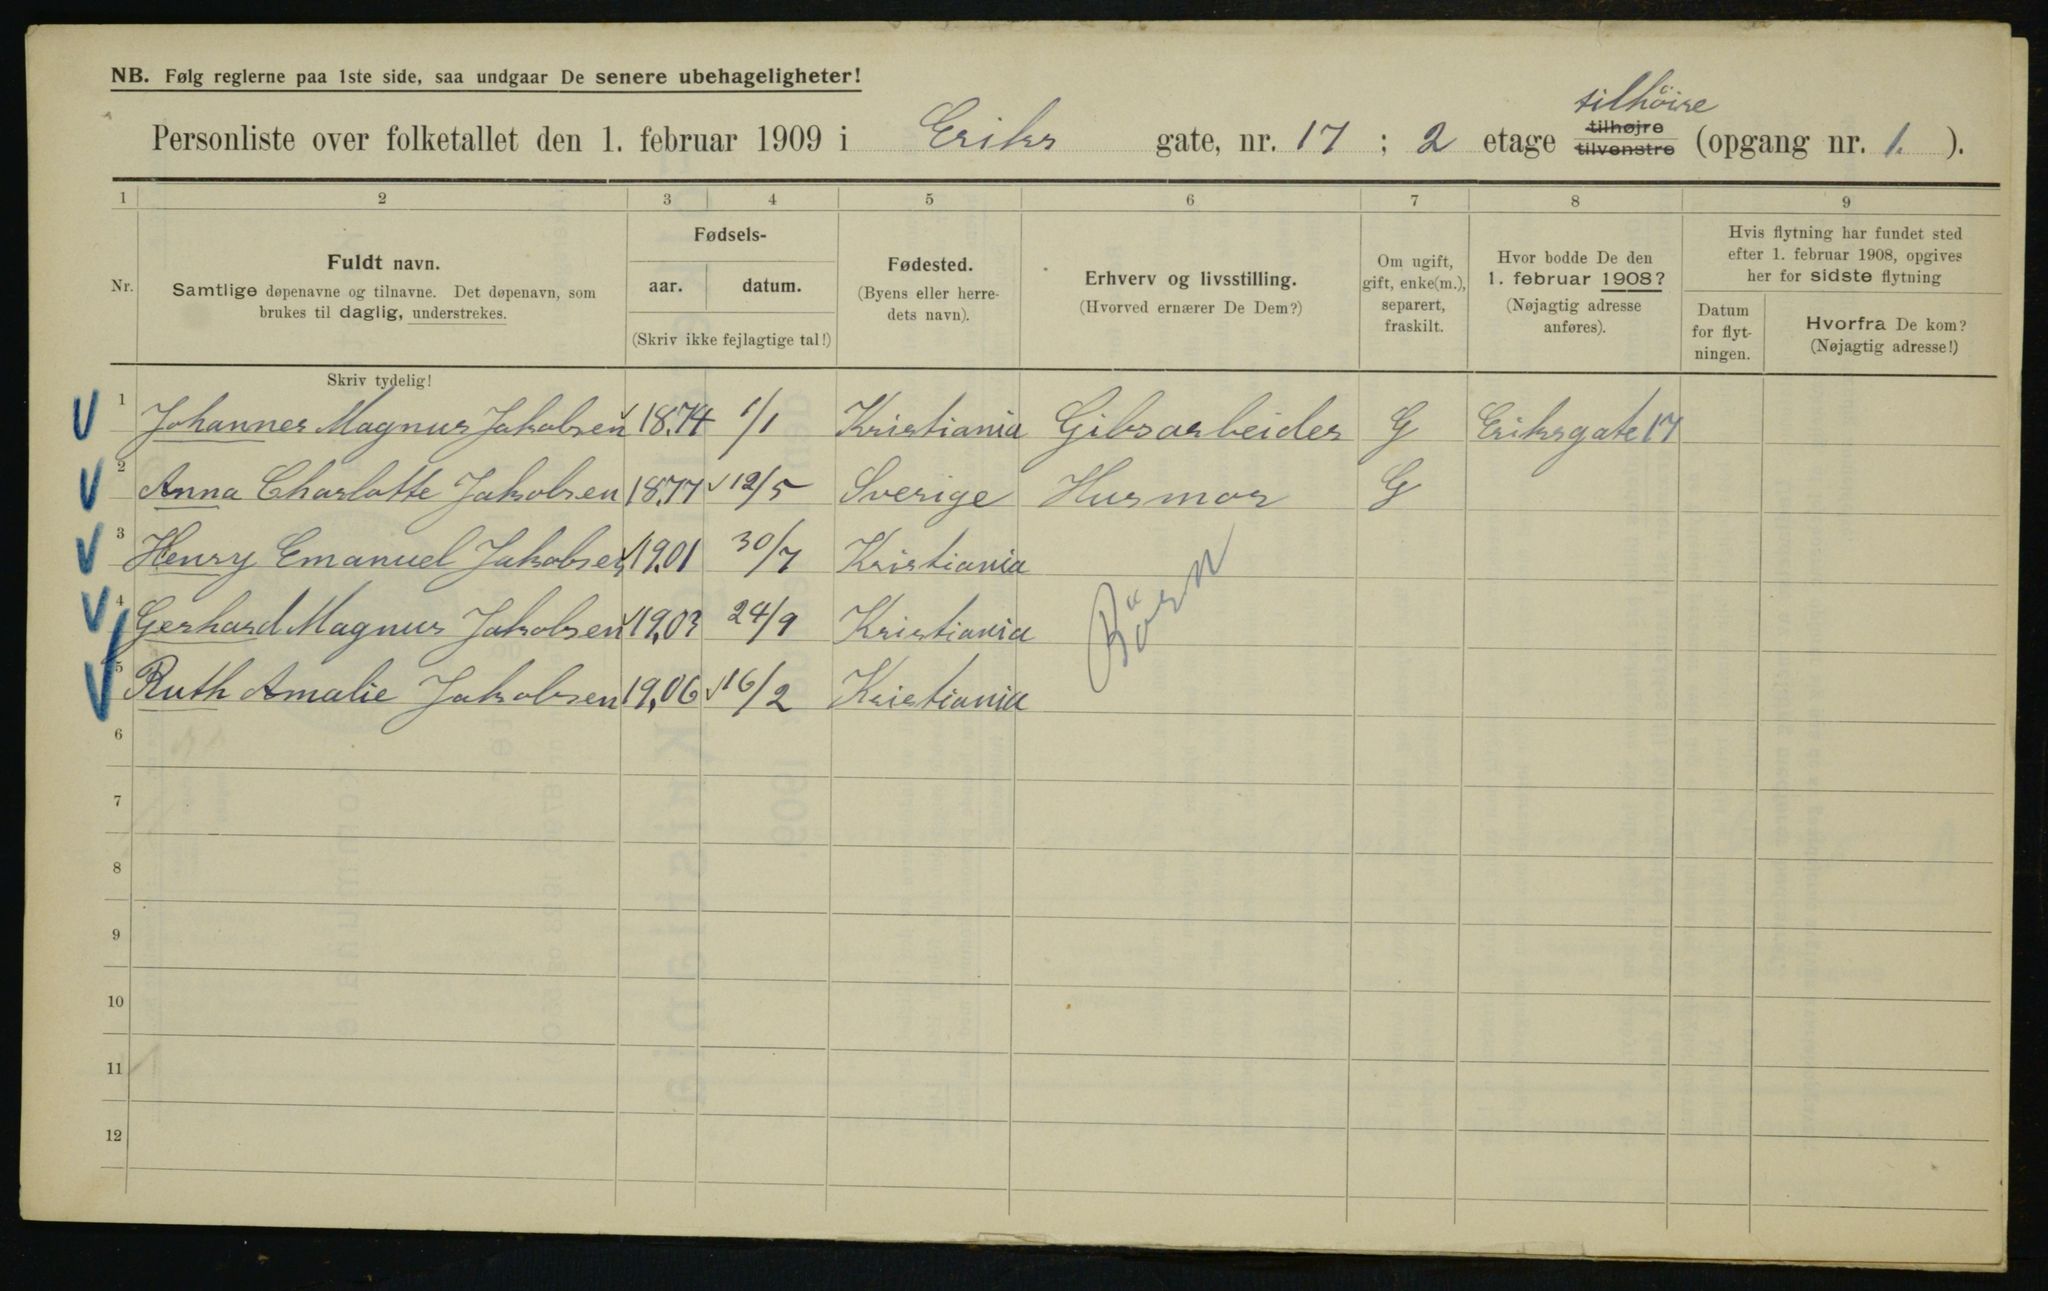 NB. Følg reglerne paa 1ste side, saa undgaar De senere ubehageligheter!
tilhöire
Personliste over folketallet den 1. februar 1909 i Eriks gate, nr. 17 ; 2 etage tilhøjre tilvenstre (opgang nr. 1. ).
1 2 3 4 5 6 7 8 9
Nr.
Fuldt navn.
Samtlige døpenavne og tilnavne. Det døpenavn, som
brukes til daglig, understrekes.
Fødsels-
aar. datum.
(Skriv ikke fejlagtige tal!)
Fødested.
(Byens eller herre-
dets navn).
Erhverv og livsstilling.
(Hvorved ernærer De Dem?)
Om ugift,
gift, enke(m.),
separert,
fraskilt.
Hvor bodde De den
1. februar 1908?
(Nøjagtig adresse
anføres).
Hvis flytning har fundet sted
efter 1. februar 1908, opgives
her for sidste flytning
Datum
for flyt-
ningen.
Hvorfra De kom?
(Nøjagtig adresse!)
Skriv tydelig!
1 Johannes Magnus Jakobsen 1874 1/1 Kristiania Gibsarbeider G Eriksgate 17
2 Anna Charlotte Jakobsen 1877 12/5 Sverige Husmor G
3 Henry Emanuel Jakobsen 1901 30/7 Kristiania
4 Gerhard Magnus Jakobsen 1903 24/9 Kristiania
Börn
5 Ruth Amalie Jakobsen 1906 16/2 Kristiania
6
7
8
9
10
11
12